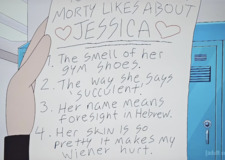 MORTY LIKES ABOUT
♡JESSICA♡
1. The smell of her
gym shoes.
2. The way she says
"succulent."
3. Her name means
foresight in Hebrew.
4. Her skin is so
pretty it makes my
wiener hurt.
[adult swim]